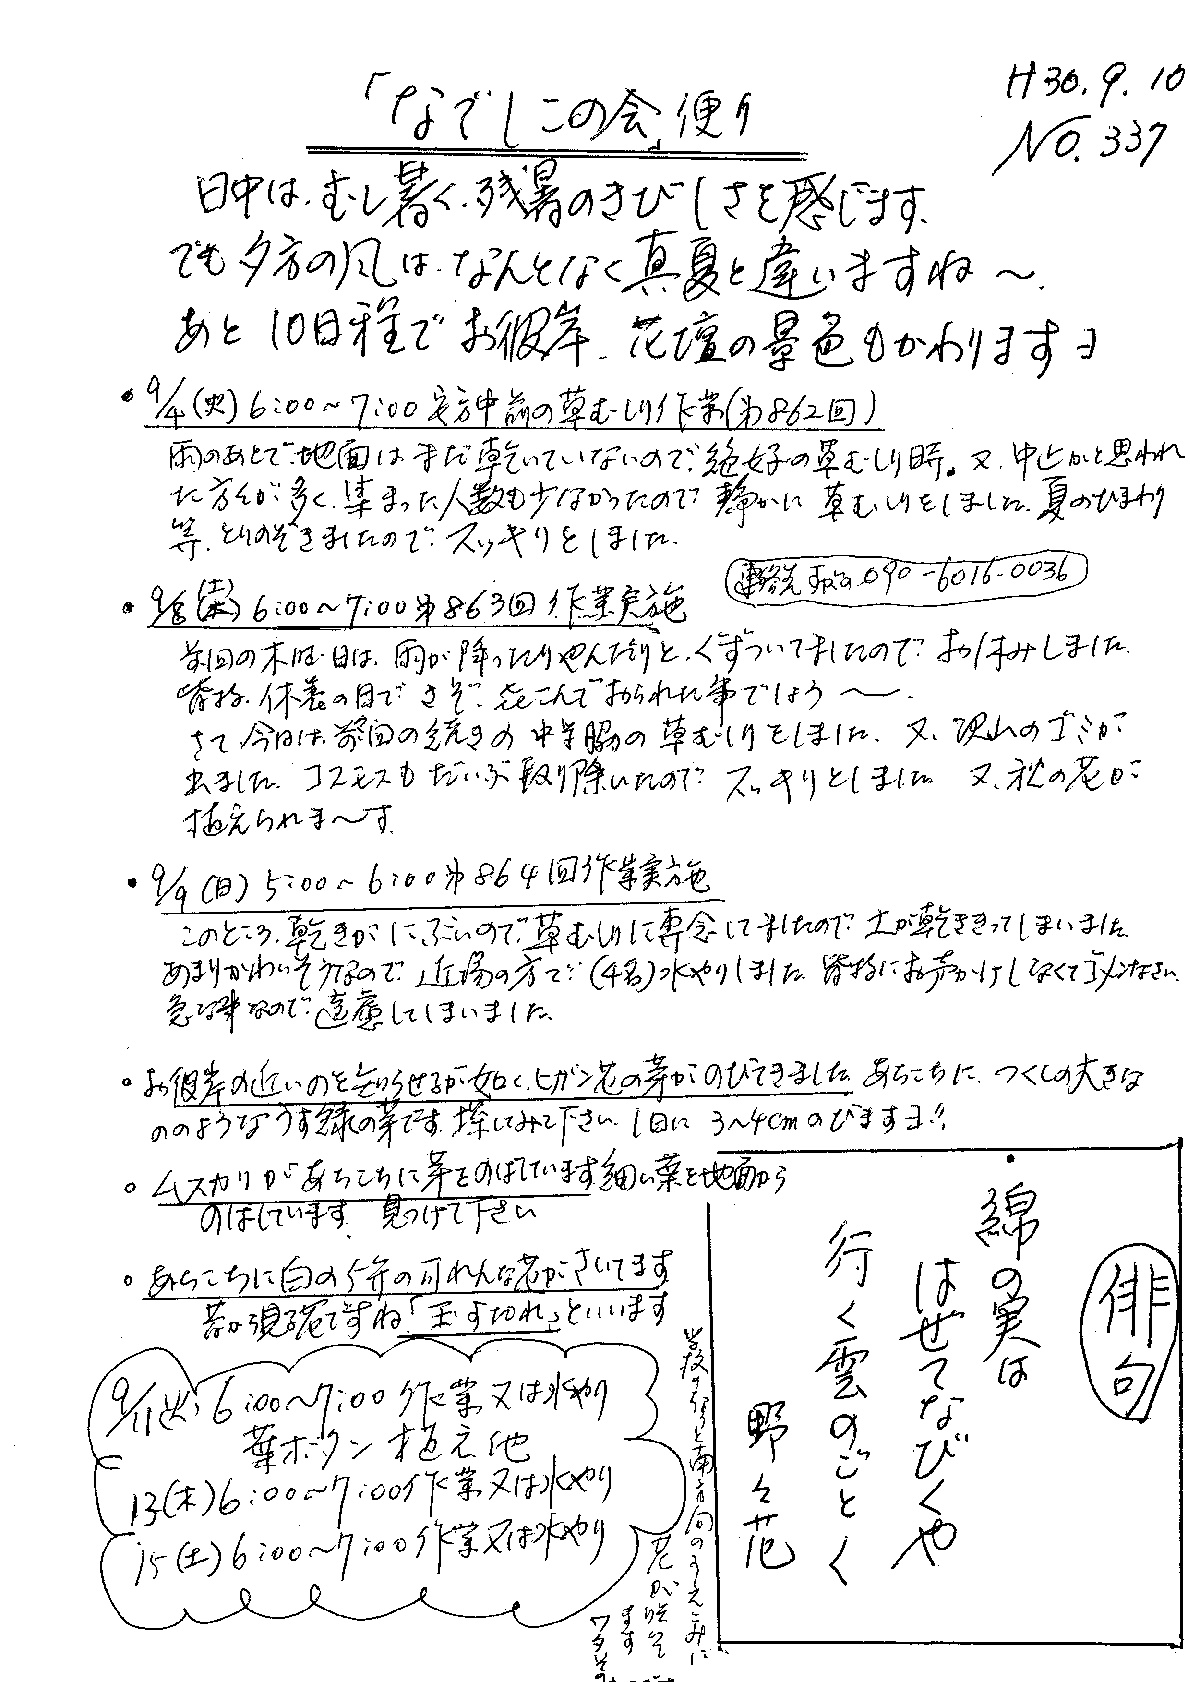 H30.9.10
NO.337
「なでしこの会」便り
日中は、むし暑く、残暑のきびしさを感じます、
でも夕方の風は、なんとなく真夏と違いますね～、
あと10日程でお彼岸、花壇の景色もかわりますヨ
・9/4(火)6:00～7:00 宮方中前の草むしり作業(第862回)
雨のあとで、地面はまだ乾いていないので、絶好の草むしり時。又、中止かと思われ
た方々が多く、集まった人数も少なかったので静かに草むしりをしました、夏のひまわり
等、とりのぞきましたので、スッキリとしました、
連絡先 090-6016-0036
・9/8(土)6:00～7:00 第863回作業実施
前回の木曜日は、雨が降ったりやんだりと、ぐずついてましたので、お休みしました、
皆様、休養の日で、さぞ、よろこんでおられた事でしょう～、
さて今日は、前回の続きの中学脇の草むしりをしました、又、沢山のゴミが
出ました、コスモスもだいぶ取り除いたので スッキリとしました 又、秋の花が
植えられま～す、
・9/9(日)5:00～6:00 第864回作業実施
このところ、乾きがにぶいので、草むしりに専念してましたので、土が乾ききってしまいました、
あまりかわいそうなので、近場の方で(4名)水やりしました、皆様にお声かけしなくてゴメンなさい、
急な事なので、遠慮してしまいました、
○お彼岸の近いのを知らせるが如く、ヒガン花の芽がのびてきました、あちこちに、つくしの大きな
ののようなうす緑の芽です、探してみて下さい、1日に3～4cmのびますヨ!!
○ムスカリがあちこちに芽をのばしています細い葉を地面から
のばしています、見つけて下さい
○あちこちに白の5弁の可れんな花がさいてます
「玉すだれ」といいます
9/11(火)6:00～7:00 作業又は水やり
葉ボタン植え他
13(木)6:00～7:00作業又は水やり
15(土)6:00～7:00作業又は水やり
俳句
綿の実は
はぜてなびくや
行く雲のごとく
野々花
南方向のうえこみに
花が咲いて
ます